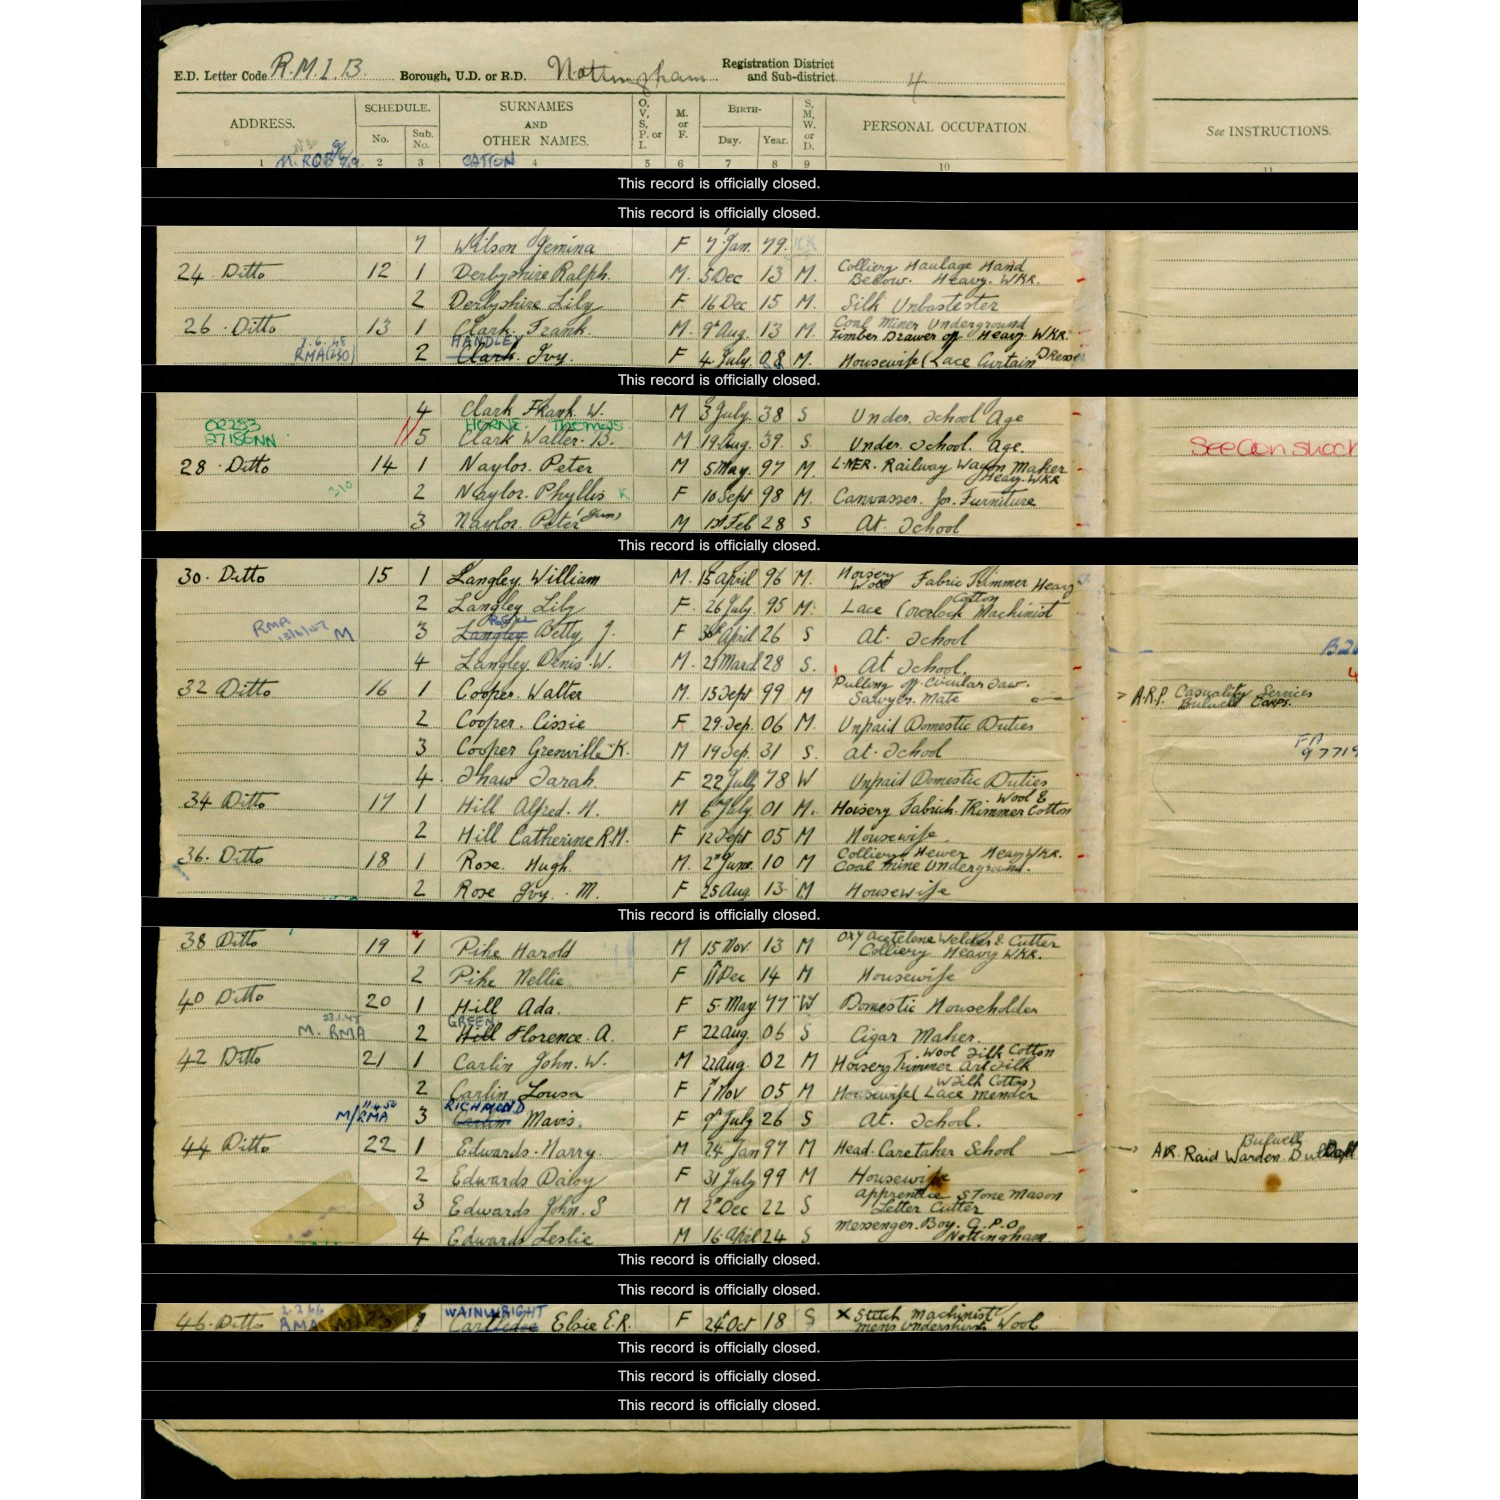 E.D. Letter Code R.M.I.B. Borough, U.D. or R.D. Nottingham Registration District and Sub-district 4
ADDRESS. SCHEDULE. No. Sub. No. SURNAMES AND OTHER NAMES. O, V, S, P. or I. M. or F. BIRTH- Day. Year. S, M, W. or D. PERSONAL OCCUPATION See INSTRUCTIONS.
1 2 3 4 5 6 7 8 9 10 11
CATTON
This record is officially closed.
This record is officially closed.
7 Wilson Jemina F 7 Jan. 79.
24 Ditto 12 1 Derbyshire Ralph. M. 5 Dec 13 M. Colliery Haulage Hand Below. Heavy. WKR.
2 Derbyshire Lily F 16 Dec 15 M. Silk Unbastester
26 Ditto 13 1 Clark. Frank. M. 9 Aug. 13 M. Coal Miner Underground Timber Drawer off Heavy WKR.
RMA(230) HANDLEY
2 Clark. Ivy. F 4 July. 08 M. Housewife (Lace Curtain Dresser
This record is officially closed.
4 Clark Frank W. M 3 July. 38 S Under School Age
HORNE. THOMAS
5 Clark Walter. B. M 19 Aug. 39. S. Under School Age.
See Con Shock
28 Ditto 14 1 Naylor Peter M 5 May. 97 M. L.N.E.R. Railway Wagon Maker Heavy WKR
2 Naylor. Phyllis K F 10 Sept 98 M. Canvasser. for Furniture
3 Naylor. Peter (Jun) M 1st Feb 28 S At School
This record is officially closed.
30. Ditto 15 1 Langley. William M. 15 April 96 M. Hosiery Wool Fabric Trimmer Heavy
2 Langley Lily F. 26 July. 95 M. Lace (Cotton overlock Machinist
RMA M 3 Langley Betty J. F 30 April 26 S At School
4 Langley. Denis W. M. 21 March 28 S. At School.
32 Ditto 16 1 Cooper. Walter M. 15 Sept 99 M Pulling off Circular Saw. Sawyers Mate
A.R.P. Casualty Services Bulwell Corps.
2 Cooper. Cissie F 29. Sep. 06 M. Unpaid Domestic Duties
3 Cooper Grenville K. M 19 Sep. 31 S. At School
4. Shaw Sarah F 22 July 78 W Unpaid Domestic Duties
34 Ditto 17 1 Hill Alfred. H. M 6 July. 01 M. Hosiery Fabrich. Trimmer Wool & Cotton
2 Hill Catherine R.M. F 12 Sept 05 M Housewife
36. Ditto 18 1 Rose. Hugh. M. 2nd June. 10 M Colliery Hewer Heavy WKR. Coal Mine Underground.
2 Rose Ivy. M. F 25 Aug. 13 M Housewife
This record is officially closed.
38 Ditto 19 1 Pike Harold M 15 Nov 13 M Oxy Acetelene Welder & Cutter Colliery Heavy WKR.
2 Pike Nellie F 11 Dec 14 M Housewife
40 Ditto 20 1 Hill Ada. F 5 May 77 W Domestic Householder
M. RMA GREEN
2 Hill Florence. A. F 22 Aug. 06 S Cigar Maker.
42 Ditto 21 1 Carlin John. W. M 22 Aug. 02 M Hosiery Trimmer Wool Silk Cotton Art Silk
2 Carlin Lousa F 1 Nov 05 M Housewife (Lace Mender (Silk Cotton)
M/RMA RICHMOND
3 Carlin Mavis. F 9 July 26 S At. School.
44 Ditto 22 1 Edwards. Harry. M 24 Jan 97 M Head. Caretaker School
Air Raid Warden. Bulwell
2 Edwards Daisy F 31 July 99 M Housewife
3 Edwards John. S M 2 Dec 22 S Apprentice Stone Mason Letter Cutter
4 Edwards Leslie M 16 April 24 S Messenger. Boy. G.P.O. Nottingham.
This record is officially closed.
This record is officially closed.
RMA WAINWRIGHT
46. Ditto Elsie E.R. F 24 Oct 18 S X Stitch Machinist Mens Undershirts Wool
This record is officially closed.
This record is officially closed.
This record is officially closed.